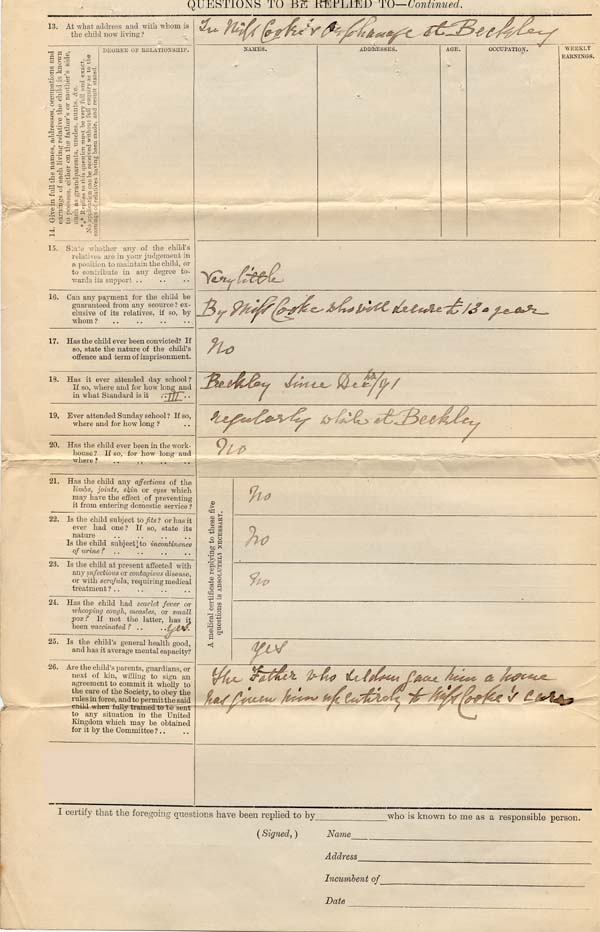 QUESTIONS TO BE REPLIED TO—Continued.
13. At what address and with whom is
the child now living?
In Miss Cooke's Orphanage at Beckley
14. Give in full the names, addresses, occupations and
earnings of each living relative the child is known
to possess, either on the father's or mother's side,
such as grandparents, uncles, aunts, &c.
*** Replies to this question must be very full and exact.
No application can be received without full enquiry as to the
earnings of relatives having been made, and result stated.
DEGREE OF RELATIONSHIP.
NAMES.
ADDRESSES.
AGE.
OCCUPATION.
WEEKLY
EARNINGS.
15. State whether any of the child's
relatives are in your judgement in
a position to maintain the child, or
to contribute in any degree to-
wards its support .. .. ..
Very little
16. Can any payment for the child be
guaranteed from any scource? ex-
clusive of its relatives, if so, by
whom? .. .. .. ..
By Miss Cooke who will secure £13 a year
17. Has the child ever been convicted? If
so, state the nature of the child's
offence and term of imprisonment.
No
18. Has it ever attended day school?
If so, where and for how long and
in what Standard is it III ..
Beckley since Dec /91
19. Ever attended Sunday school? If so,
where and for how long? ..
regularly while at Beckley
20. Has the child ever been in the work-
house? If so, for how long and
where? .. .. .. ..
No
A medical certificate replying to these five
questions is ABSOLUTELY NECESSARY.
21. Has the child any affections of the
limbs, joints, skin or eyes which
may have the effect of preventing
it from entering domestic service?
No
22. Is the child subject to fits? or has it
ever had one? If so, state its
nature .. .. .. ..
Is the child subject to incontinence
of urine? .. .. .. ..
No
23. Is the child at present affected with
any infectious or contagious disease,
or with scrofula, requiring medical
treatment? .. .. .. ..
No
24. Has the child had scarlet fever or
whooping cough, measles, or small
pox? If not the latter, has it
been vaccinated? .. .. yes.
25. Is the child's general health good,
and has it average mental capacity?
yes
26. Are the child's parents, guardians, or
next of kin, willing to sign an
agreement to commit it wholly to
the care of the Society, to obey the
rules in force, and to permit the said
child when fully trained to be sent
to any situation in the United
Kingdom which may be obtained
for it by the Committee? .. ..
The Father who seldom gave him a home
has given him up entirely to Miss Cooke's care
I certify that the foregoing questions have been replied to by who is known to me as a responsible person.
(Signed,) Name
Address
Incumbent of
Date